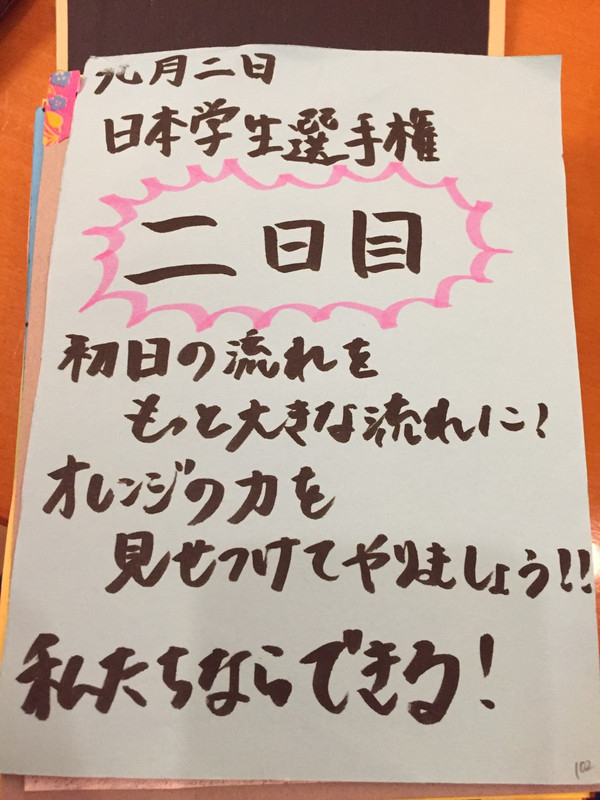 九月二日
日本学生選手権
二日目
初日の流れを
もっと大きな流れに!
オレンジの力を
見せつけてやりましょう!!
私たちならできる!
102